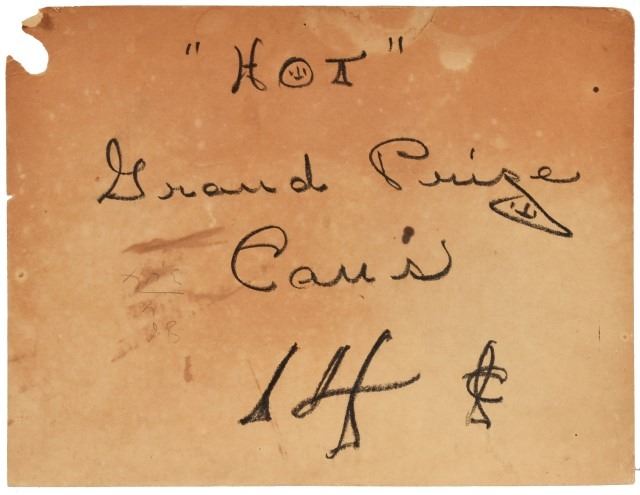 "HOT"
Grand Prize
Can's
14 ¢